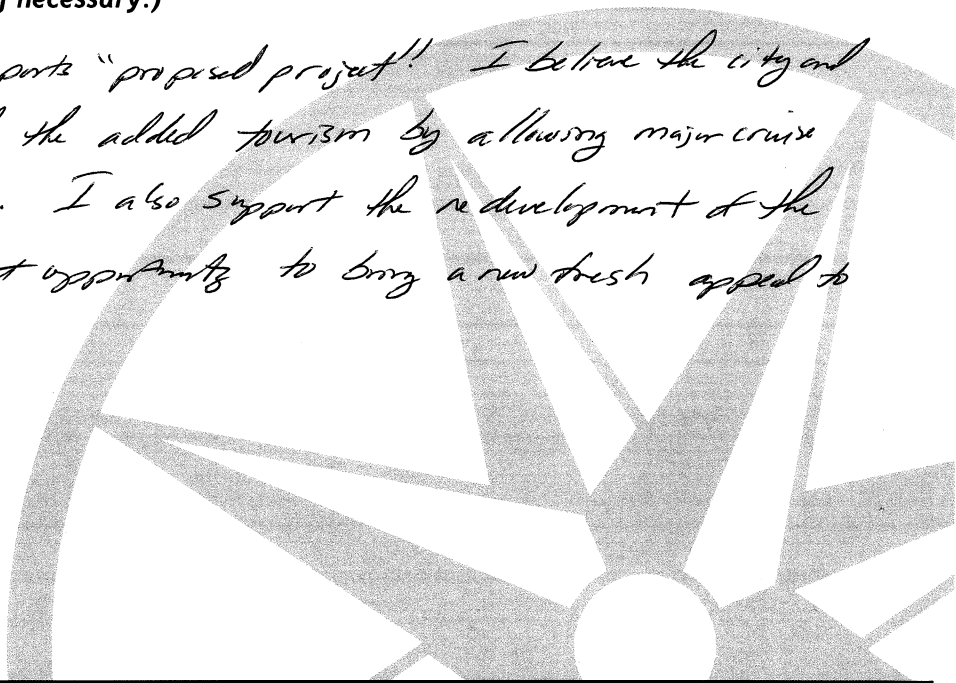 necessary.)
ports "proposed project!! I believe the city and
the added tourism by allowing major cruise
. I also support the redevelopment of the
opportunity to bring a new fresh appeal to